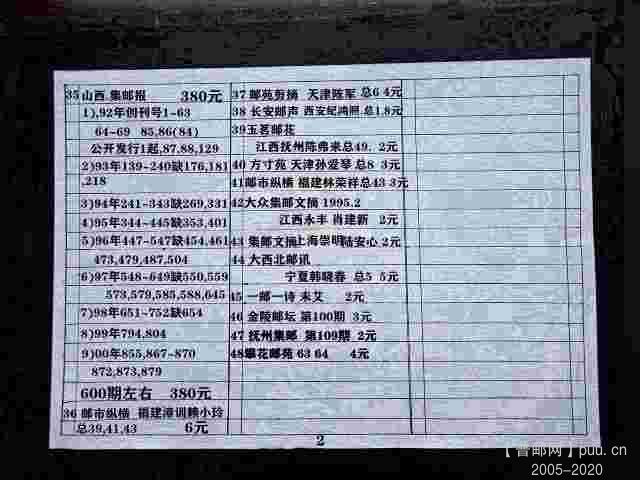 35 山西 集邮报 380元
1),92年创刊号1-63
64-69 85,86(84)
公开发行1起,87,88,129
2)93年139-240缺176,181
,218
3)94年241-343缺269,331
4)95年344-445缺353,401
5)96年447-547缺454,461
473,479,487,504
6)97年548-649缺550,559
573,579,585,588,645
7)98年651-752缺654
8)99年794,804
9)00年855,867-870
872,873,879
600期左右 380元
36 邮市纵横 福建漳训赖小玲
总39,41,43 6元
37 邮苑剪摘 天津陈军 总6 4元
38 长安邮声 西安纪鸿照 总1.8元
39玉茗邮花
江西抚州陈弗来总49. 2元
40 方寸苑 天津孙爱琴 总8 3元
41邮市纵横 福建林荣祥总43 3元
42大众集邮文摘 1995.2
江西永丰 肖建新 2元
43 集邮文摘上海崇明陆安心 2元
44 大西北邮讯
宁夏韩晓春 总5 5元
45 一邮一诗 未艾 2元
46 金陵邮坛 第100期 3元
47 抚州集邮 第109期 2元
48攀花邮苑 63 64 4元
2
【普邮网】puu.cn
2005-2020